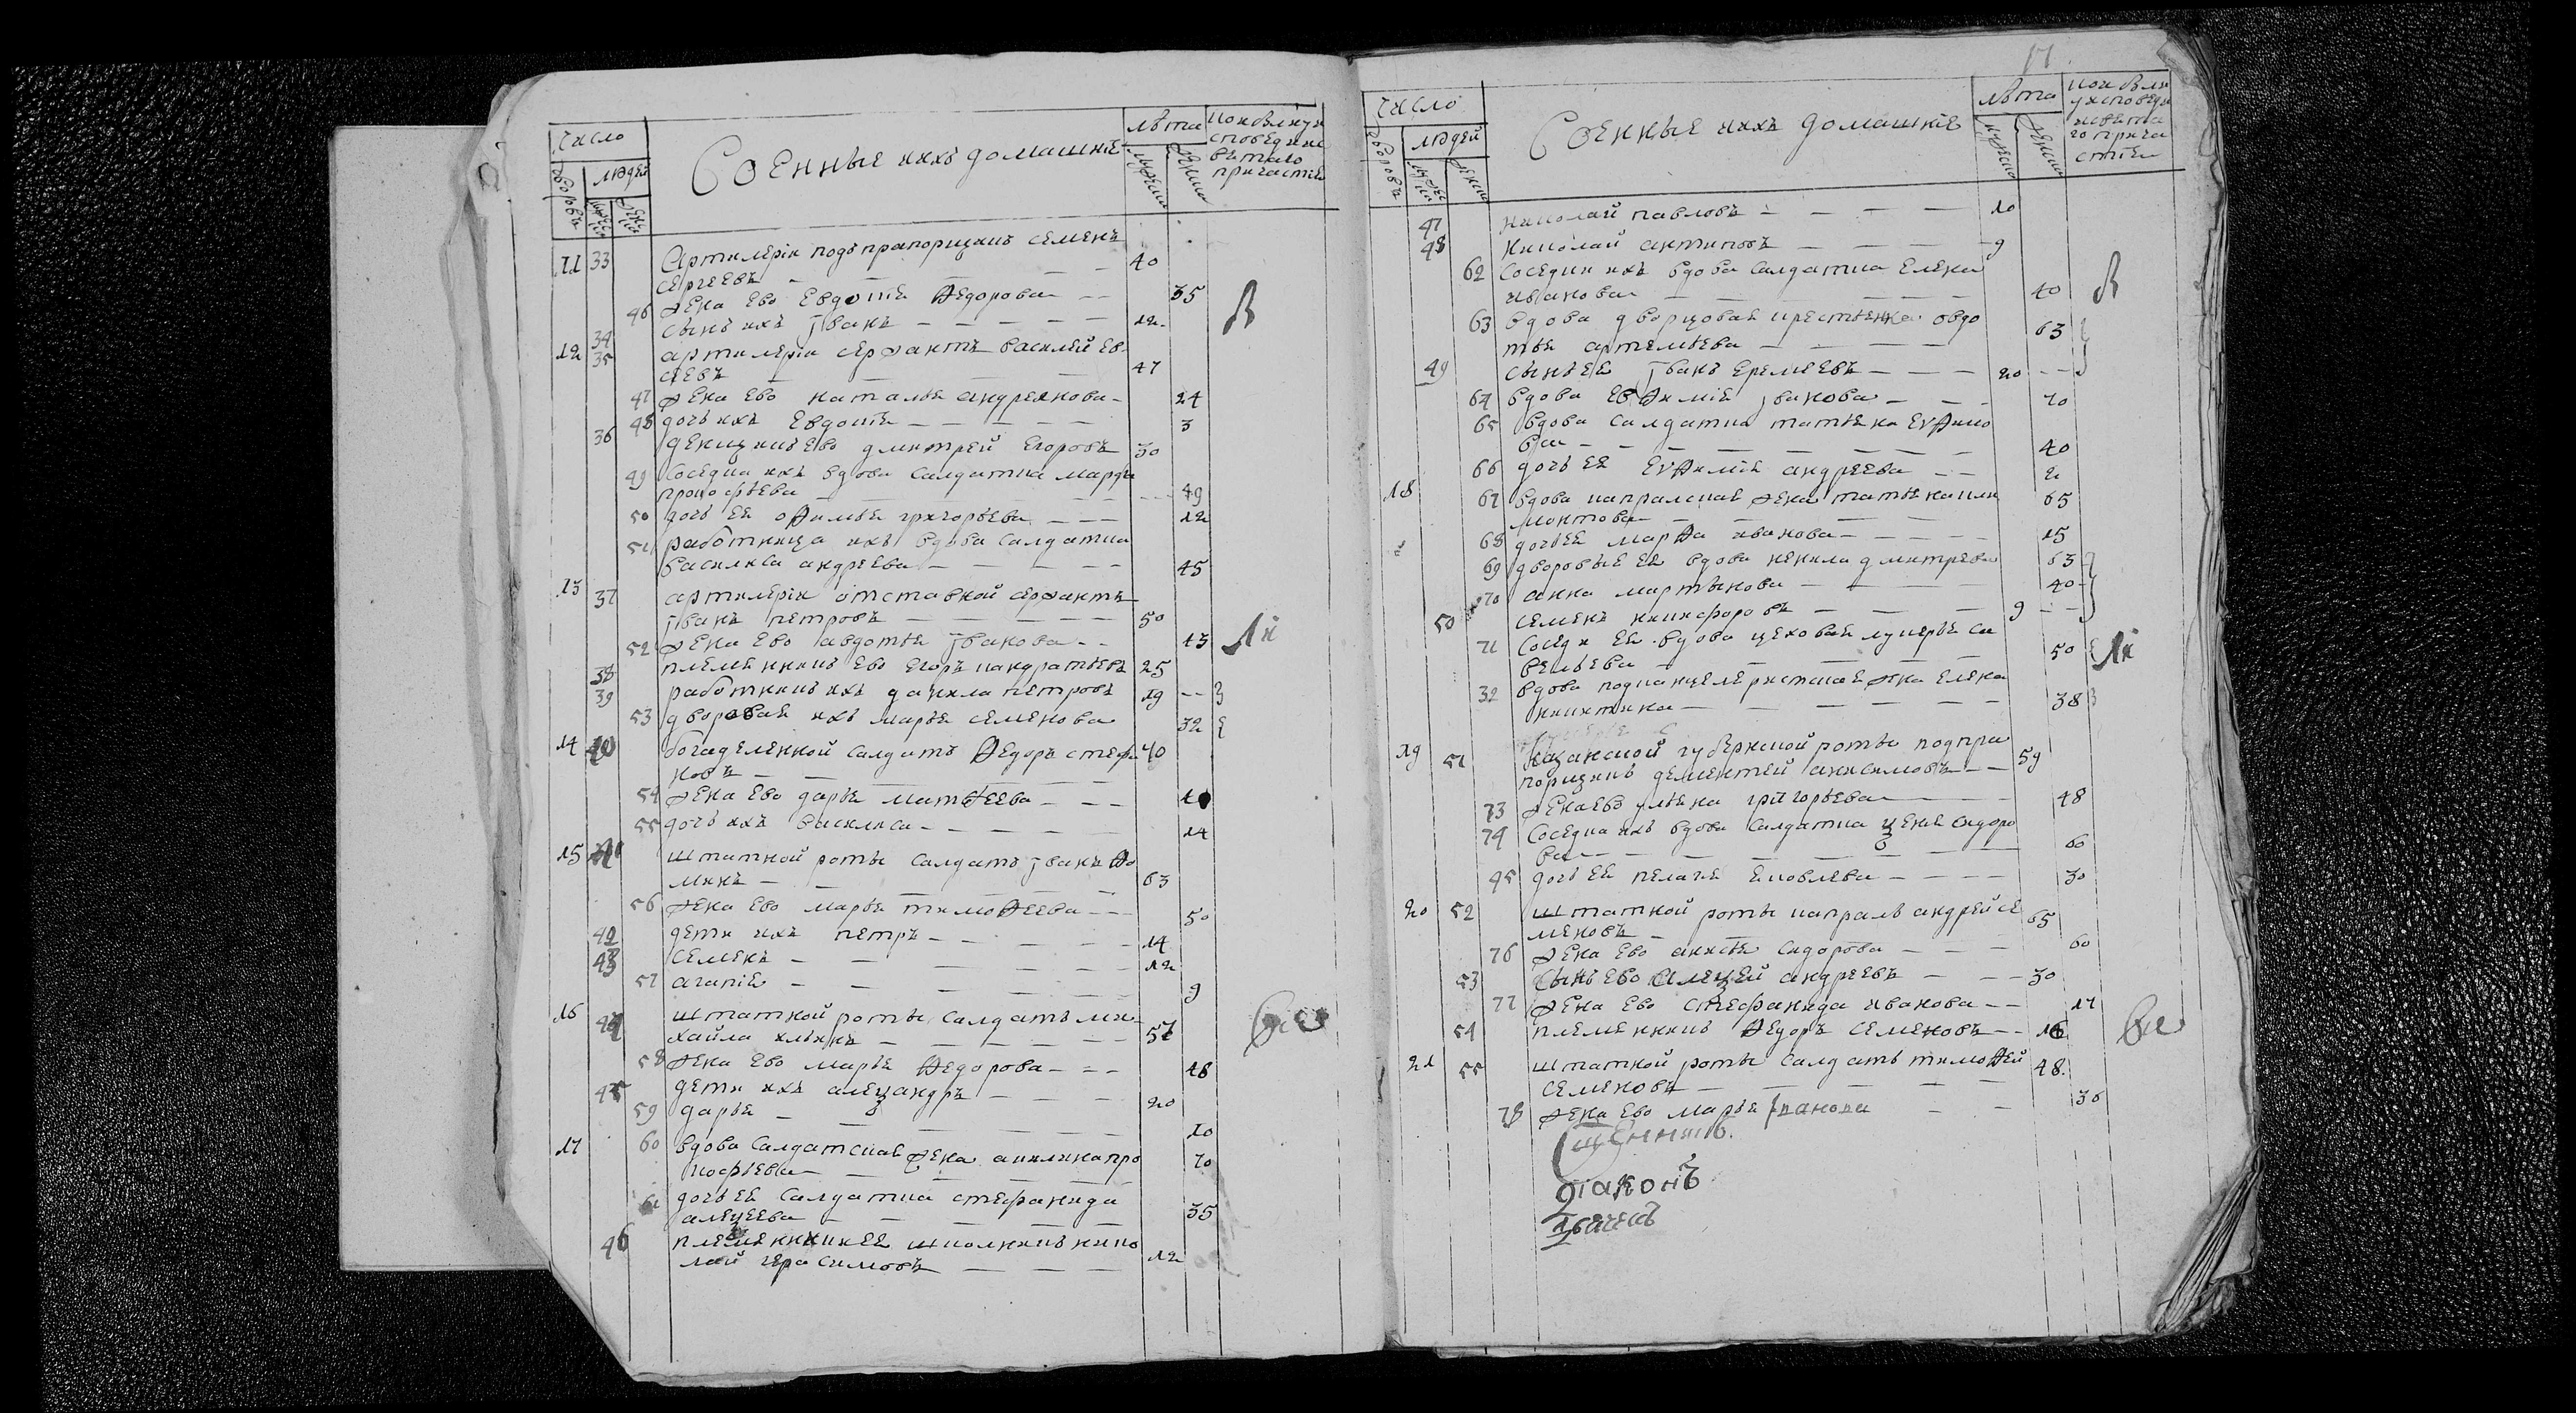 число
дворовъ
людей
мужеск
женск
Военные ихъ домашніе
лѣта
мужеска
женска
кои были у
исповеди и
свѣтаго
причастия
11 33 Артилерїи подъпрапорщикъ семенъ
сергеевъ 40
46 жена ево евдокїя Ѳедорова 35
34 сынъ ихъ Їванъ 12
12 35 артилерїи сержантъ василей ев
сеевъ 47
47 жена ево наталья андреянова 24
48 дочь ихъ евдокїя 3
36 денщикъ ево дмитрей егоровъ 30
49 соседка ихъ вдова салдатка марфа
прокофьева 49
50 дочь ея оѲимья григорьева 12
51 работница ихъ вдова салдатка
василиса андреева 45
13 37 артилерїи отставной сержантъ
Їванъ петровъ 50
52 жена ево авдотья Їванова 43
38 племянникъ ево егоръ кандратьевъ 25
39 работникъ ихъ данила петровъ 19
53 дворовая ихъ марья семенова 32
14 40 богаделенной салдатъ Ѳедоръ стефа
новъ 40
54 жена ево дарья матѲеева
55 дочь ихъ василиса 14
15 41 штатной роты салдатъ Їванъ Ѳо
минъ 63
56 жена ево марья тимоѲеева 50
42 дети ихъ петръ 14
43 семенъ 12
57 агапїя 9
16 44 штатной роты салдатъ ми
хайла ильинъ 57
58 жена ево марья Ѳедорова 46
45 дети ихъ алеѯандръ 20
59 дарья 10
17 60 вдова салдатская жена акилина про
кофьева 70
61 дочь ея салдатка стефанида
алеѯеева 35
46 племянникъ ея школникъ нико
лай герасимовъ 12
17
число
дворовъ
людей
мужеск
женск
Военные ихъ домашніе
лѣта
мужеска
женска
кои были
у исповеди
и свѣта
го прича
стїя
47 николай павловъ 10
48 николай антиповъ 9
62 соседки ихъ вдова салдатка елена
иванова 40
63 вдова дворцовая крестьянка овдо
тья артемьева 63
49 сынъ ея Їванъ еремеевъ 20
64 вдова евѲимїя Їванова 70
65 вдова салдатка татьяна еѵѲимо
ва 40
66 дочь ея еѵѲимїя андреева 2
18 67 вдова капралская жена татьяна фили
монтова 65
68 дочь ея марѲа иванова 15
69 дворовые ея вдова ненила дмитрева 63
70 анна мартынова 40
50 семенъ никифоровъ 9
71 соседи ея вдова цеховая лукерья са
вельева 50
32 вдова подканцеляристская жена елена
никитина 38
19 51 Казанской губернской роты подпра
порщикъ дементей анисимовъ 59
73 жена ево ульяна григорьева 48
74 соседка ихъ вдова салдатка ѯенья сидоро
ва 60
45 дочь ея пелагея яковлева 30
20 52 штатной роты капралъ андрей се
меновъ 65
76 жена ево анисья сидорова 60
53 сынъ ево алеѯей андреевъ 30
77 жена ево стефанида иванова 17
54 племянникъ Ѳедоръ семеновъ 16
21 55 штатной роты салдатъ тимоѲей
семеновъ 48
78 жена ево марья Їванова 36
Сщенникъ
Диаконъ